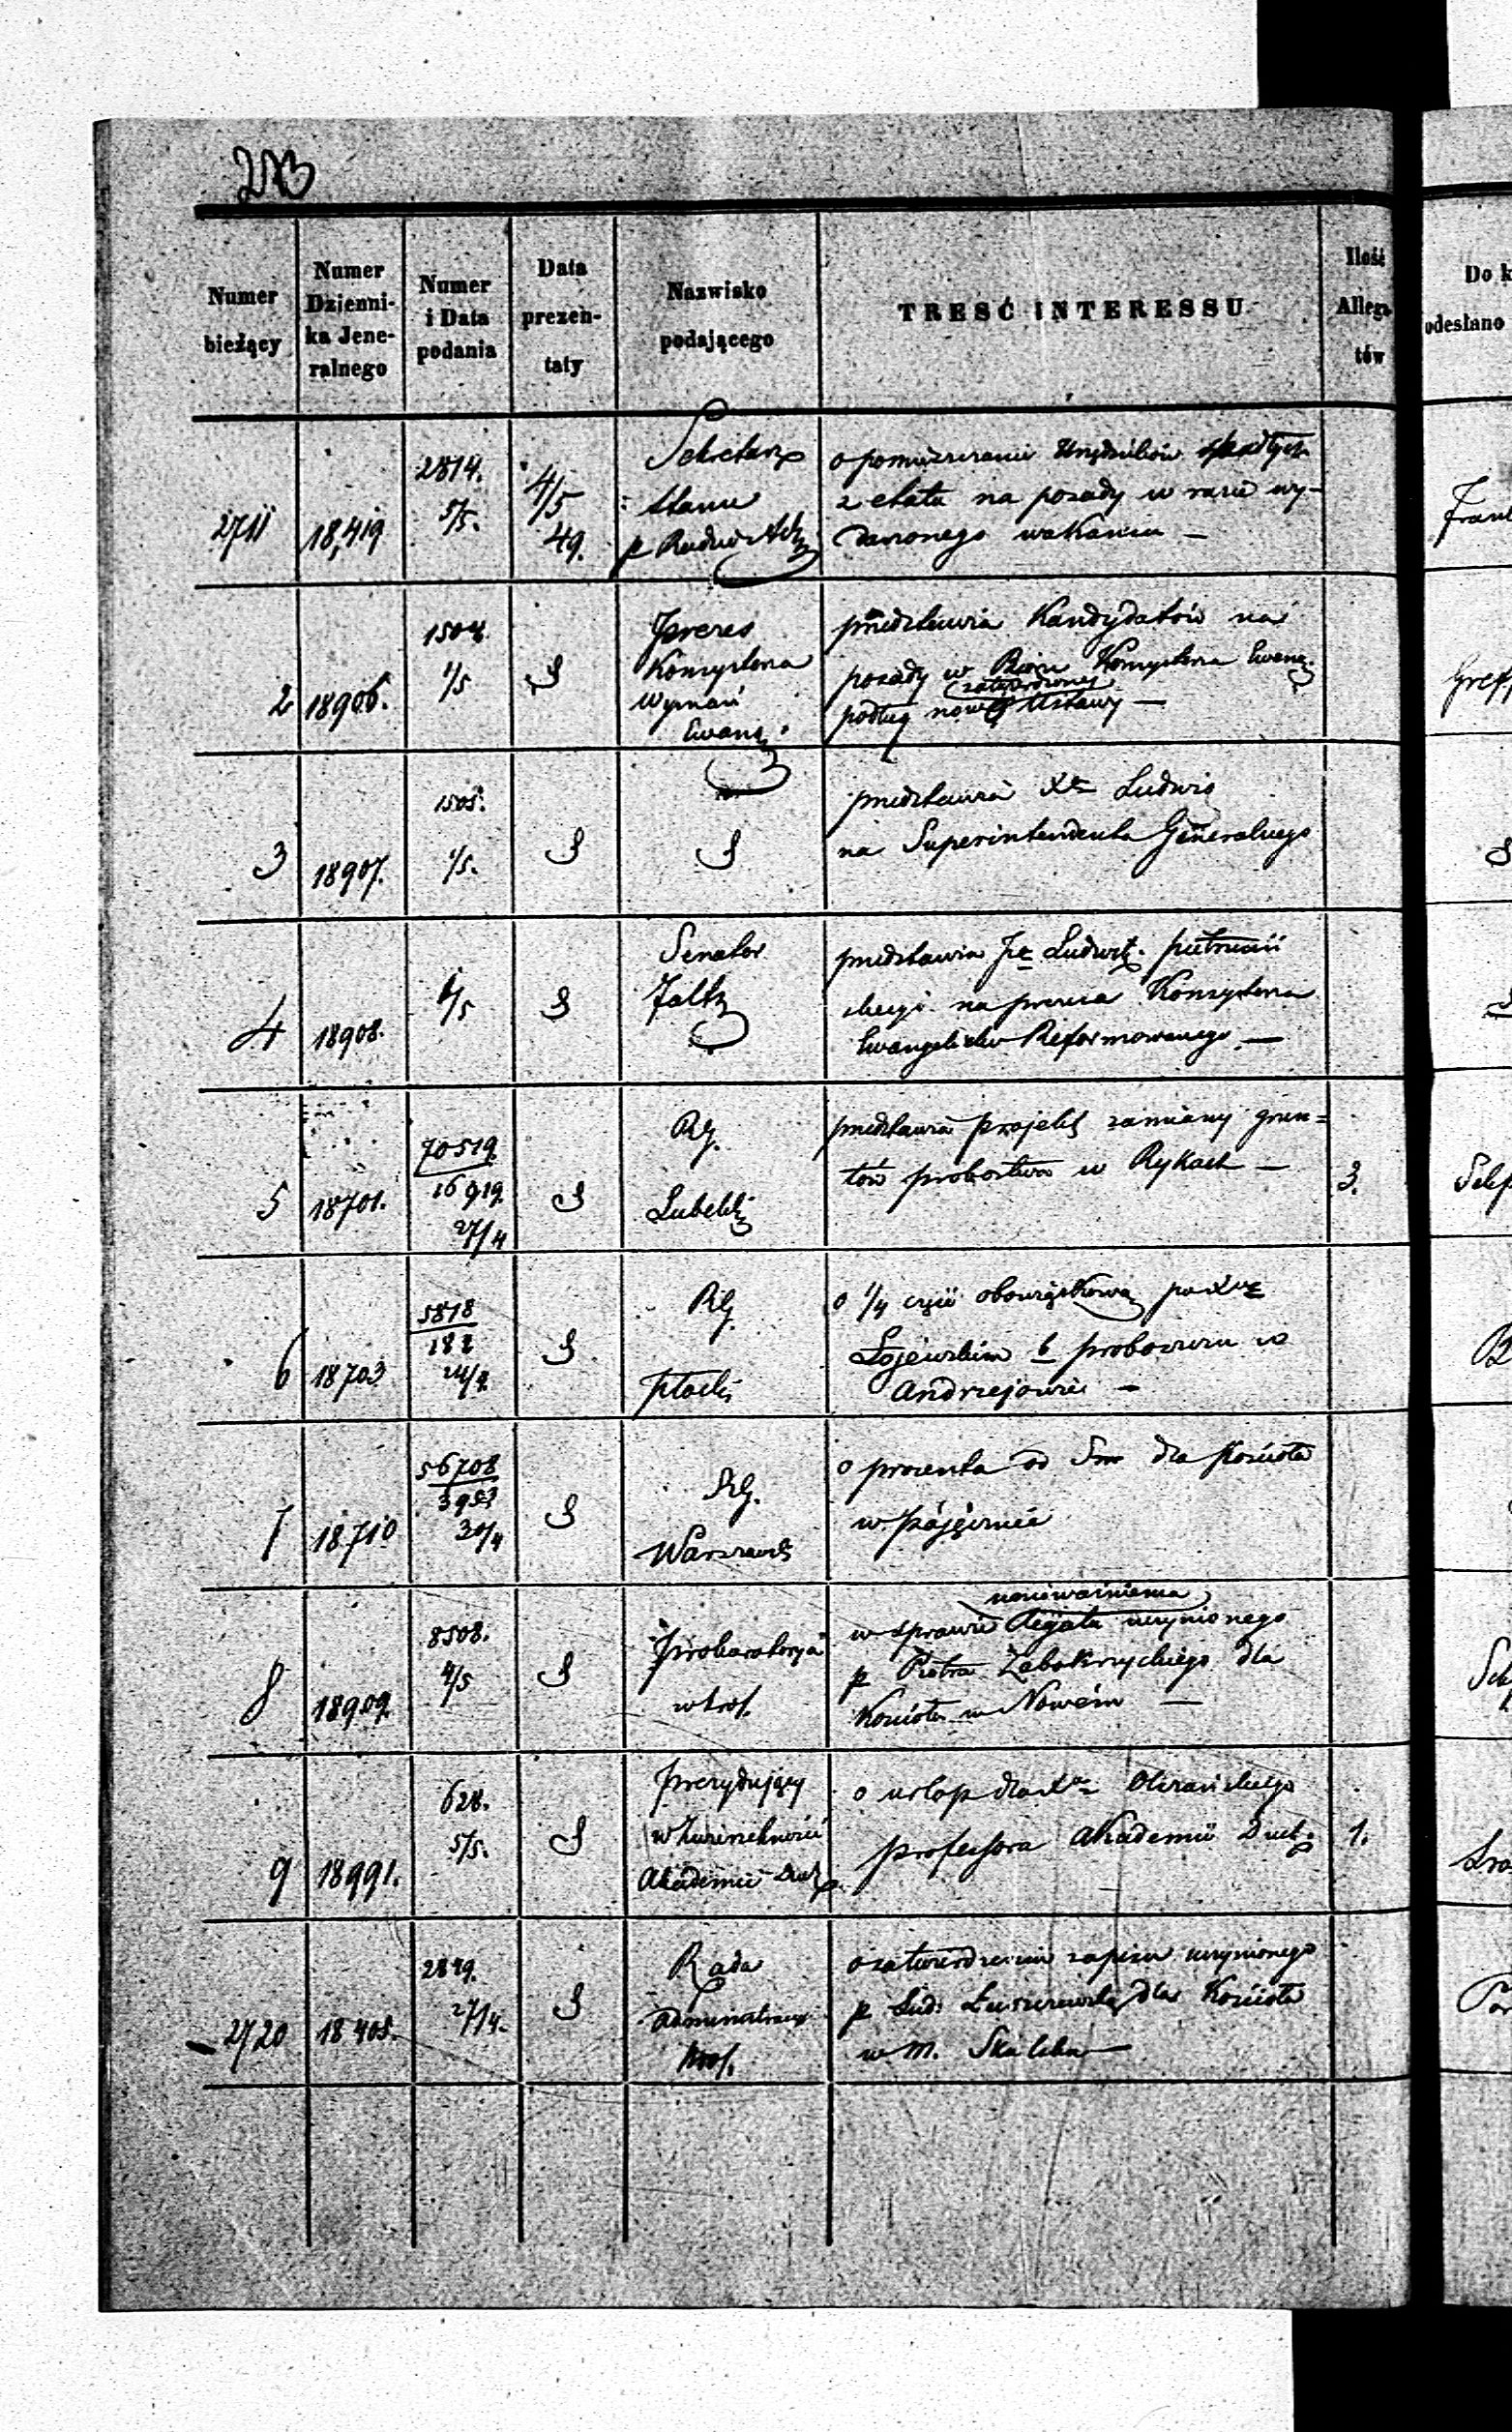 273
Numer bieżący
Numer Dzienni-
ka Jene-
ralnego
Numer
i Data
podania
Data
prezen-
taty
Nazwisko
podającego
TREŚĆ INTERESSU
Ilość
Allega-
tów
Do k
odesłano
2711
18,419
2814.
5/5.
4/5
49.
Sekretarz
Stanu
o pomieszczenie Urzędników spadłych
z etatu na posady w razie wy-
darzonego wakansu —
2
18906.
1504.
1/5
Prezes
Konsystorza
Wyznań
Ewang.
przedstawia Kandydatów na
posady w Biórze Konsystorza Ewang.
zatwierdzonej
podług nowej Ustawy —
3
18907.
1505.
1/5.
przedstawia Xa Ludwig
na Superintendenta Generalnego
4
18908.
1/5
Senator
przedstawia
na prezesa Konsystorza
Ewangelicko Reformowanego —
5
18701.
70519
16919
27/4
RG.
Lubelski
przedstawia projekt zamiany grun=
tów probostwa w Rykach —
3.
6
18703
5818
182
24/4
RG.
Płocki
o 1/4 część obowiązkową po Xdzu
Łojewskim b proboszczu w
Andrzejowie —
7
18710
56708
3953
30/4
RG.
Warszawski
o procenta od Sum dla Kościoła
w
8
18909.
8508.
4/5
Prokuratorya
w Król.
unieważnienia
w sprawie Legatu uczynionego
p Piotra Zabokrzyckiego dla
Kościoła w Nowém —
9
18991.
628.
5/5.
Prezydujący
w Zwierzchności
Akademii Duch.
o urlop dla Xa
professora Akademii Duch.
1.
2720
18405.
2849.
27/4.
Rada
Administracyi
Król.
o zatwierdzenie zapisu uczynionego
p Lud: Łuszczewską dla Kościoła
w m.